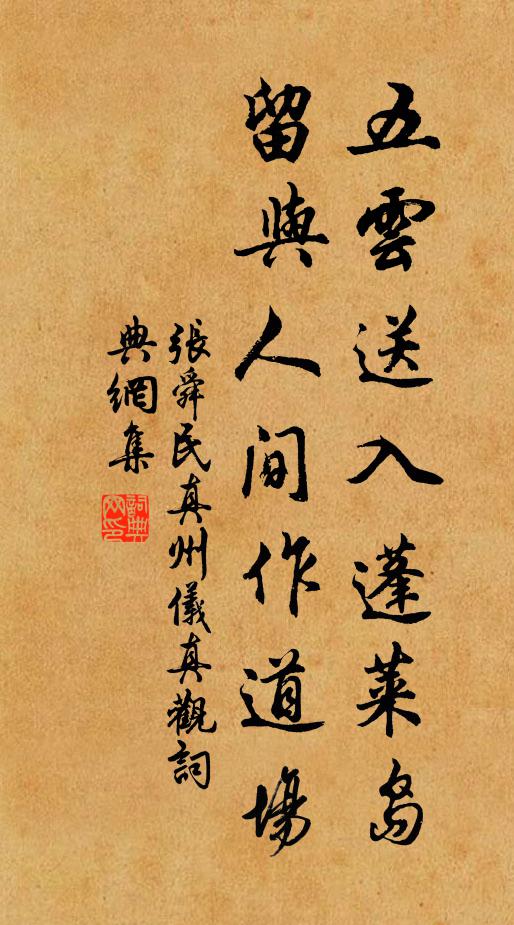 五雲送入蓬萊島
留與人间作道場
張舜民真州儀真觀詞
典網集
詞典網印